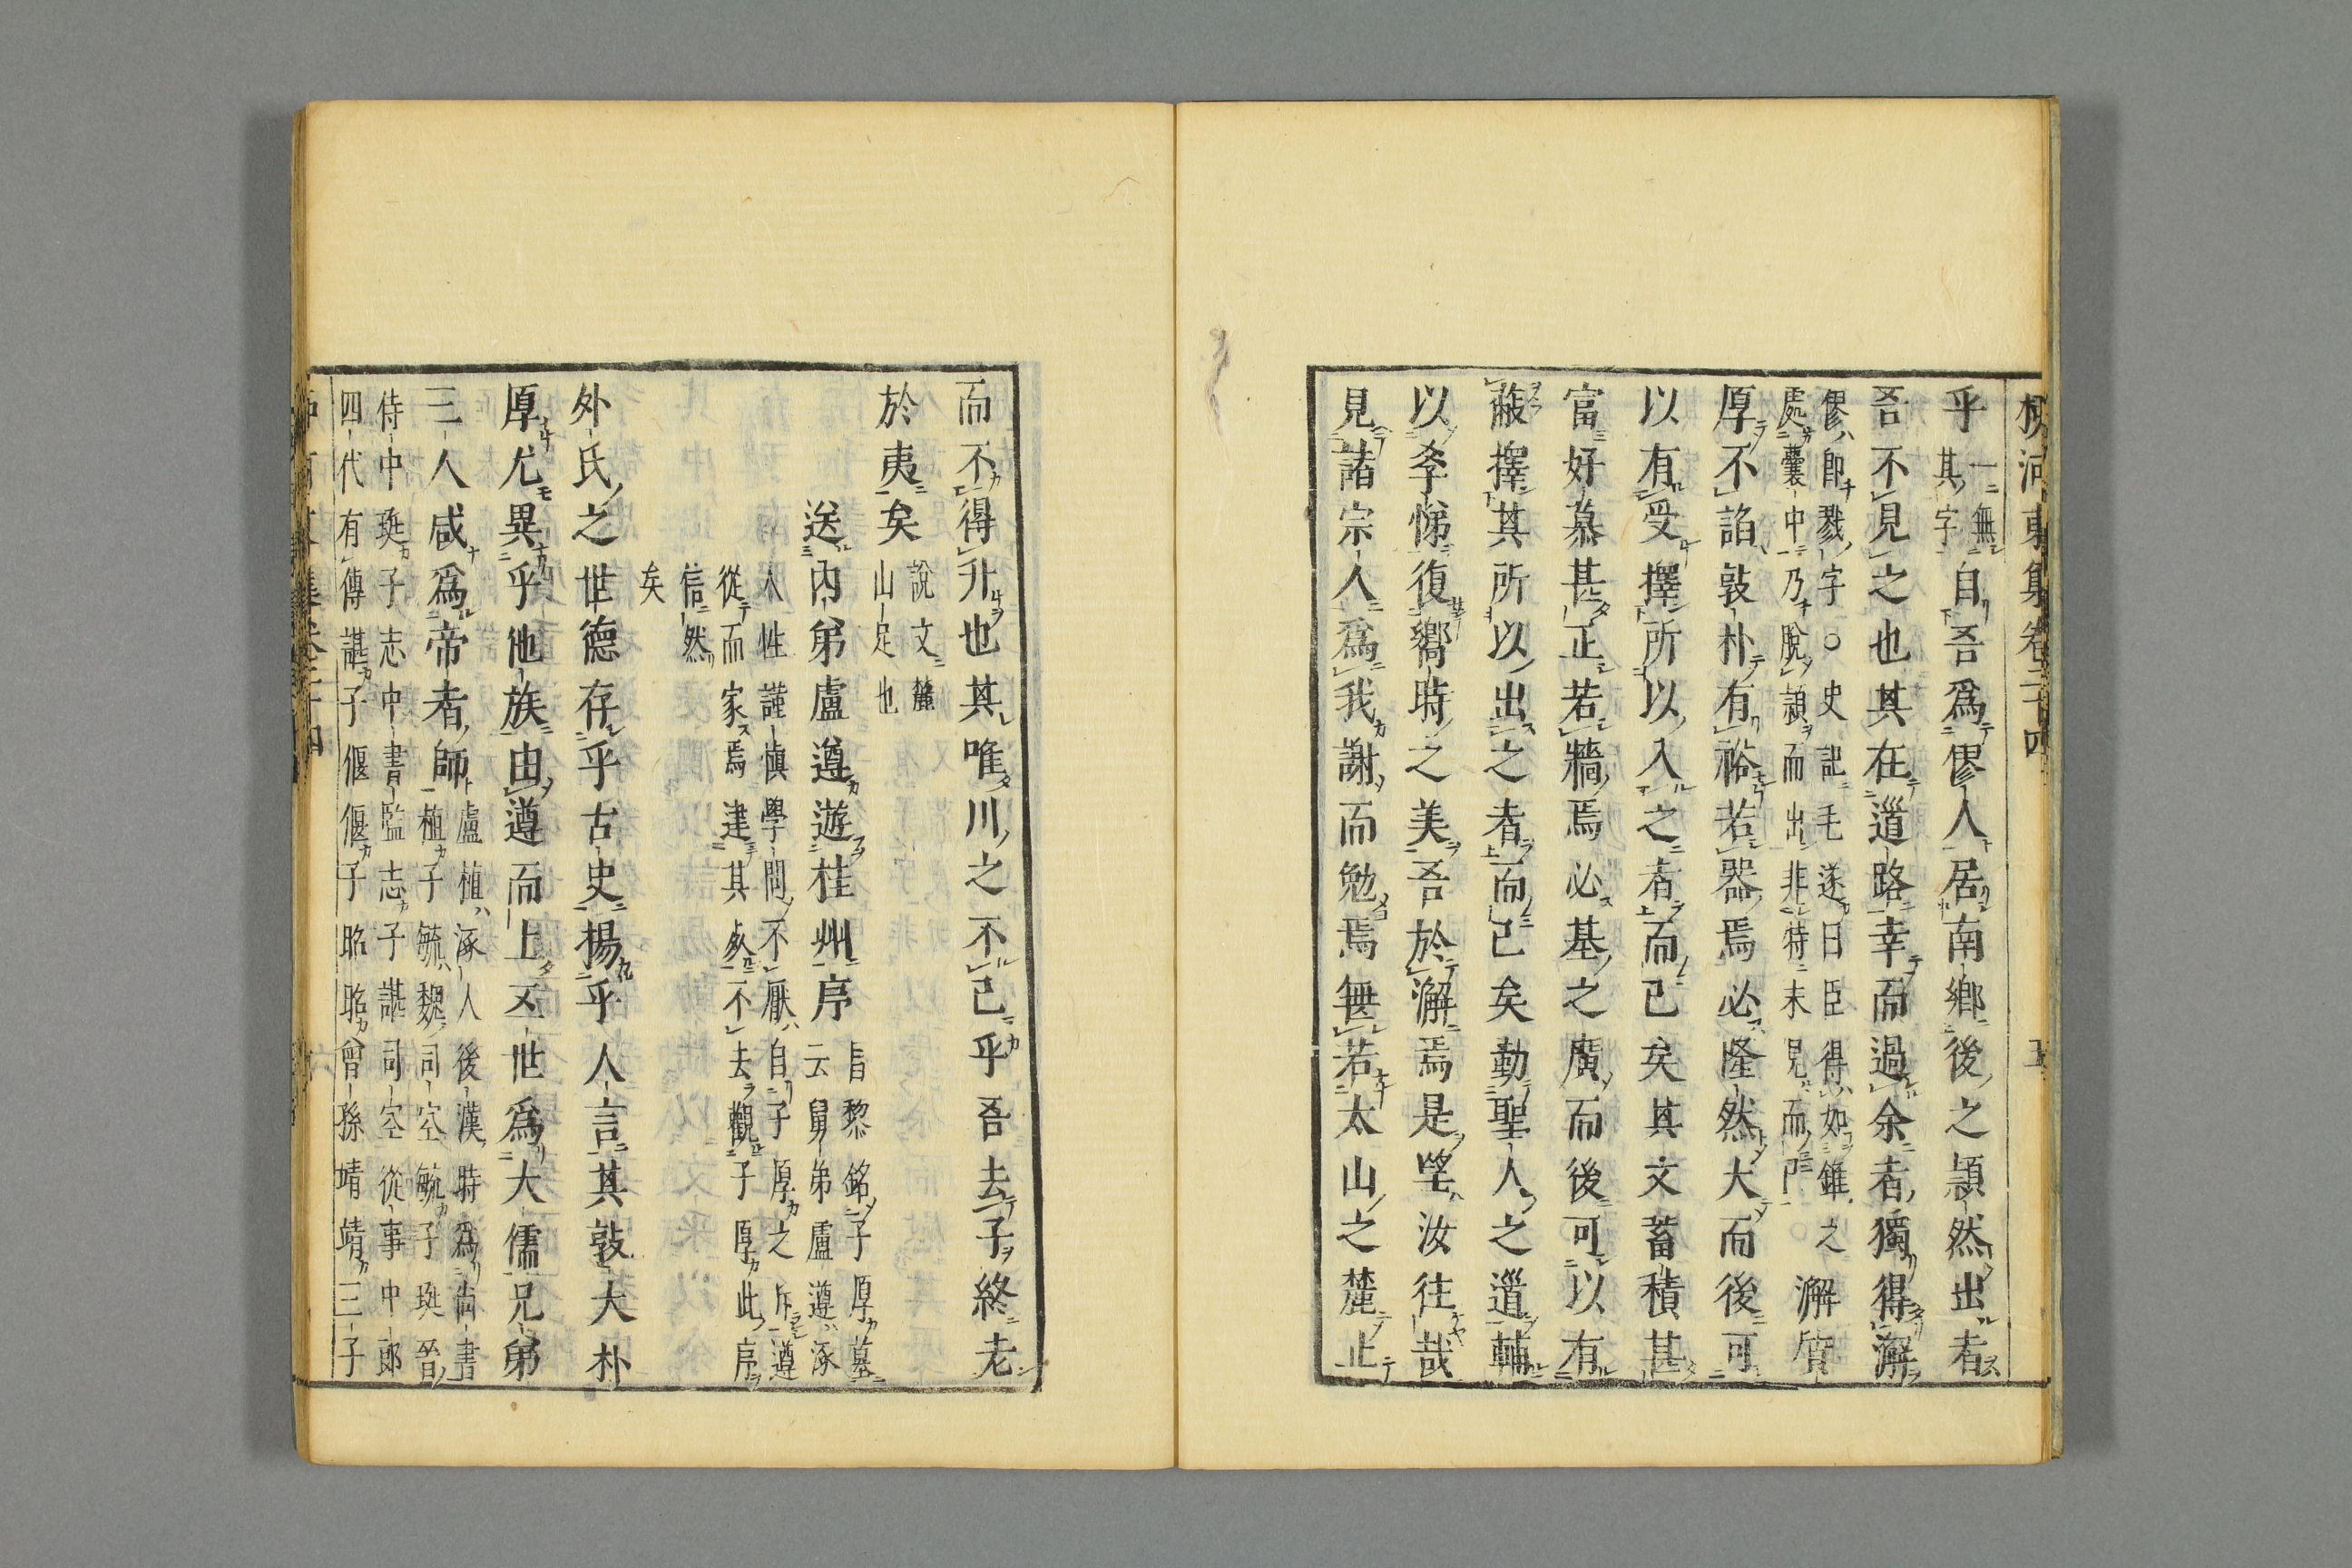 柳河東集卷二十四 五
乎
一無
其字
自吾爲僇人居南鄉後之頴然出者
吾不見之也其在道路幸而過余者獨得澥
僇即戮字○史記毛遂曰臣得如錐之
處囊中乃脫頴而出非特末見而已○
澥質
厚不諂敦朴有裕若器焉必隆然大而後可
以有受擇所以入之者而已矣其文蓄積甚
富好慕甚正若牆焉必基之廣而後可以有
蔽擇其所以出之者而已矣勤聖人之道輔
以孝悌復嚮時之美吾於澥焉是望汝往哉
見諸宗人爲我謝而勉焉無若太山之麓止
而不得升也其唯川之不已乎吾去子終老
於夷矣
說文麓
山足也
送內弟盧遵遊桂州序
旨黎銘子厚墓
云舅弟盧遵涿
人性謹慎學問不厭自子厚之斥遵
從而家焉建其死不去觀子厚此序
信然
矣
外氏之世德存乎古史揚乎人言其敦大朴
厚尤異乎他族由遵而上五世爲大儒兄弟
三人咸爲帝者師
盧植涿人後漢時爲尚書
植子毓魏司空毓子珽晉
侍中珽子志中書監志子諶司空從事中郎
四代有傳諶子偃偃子昭昭曾孫靖靖三子